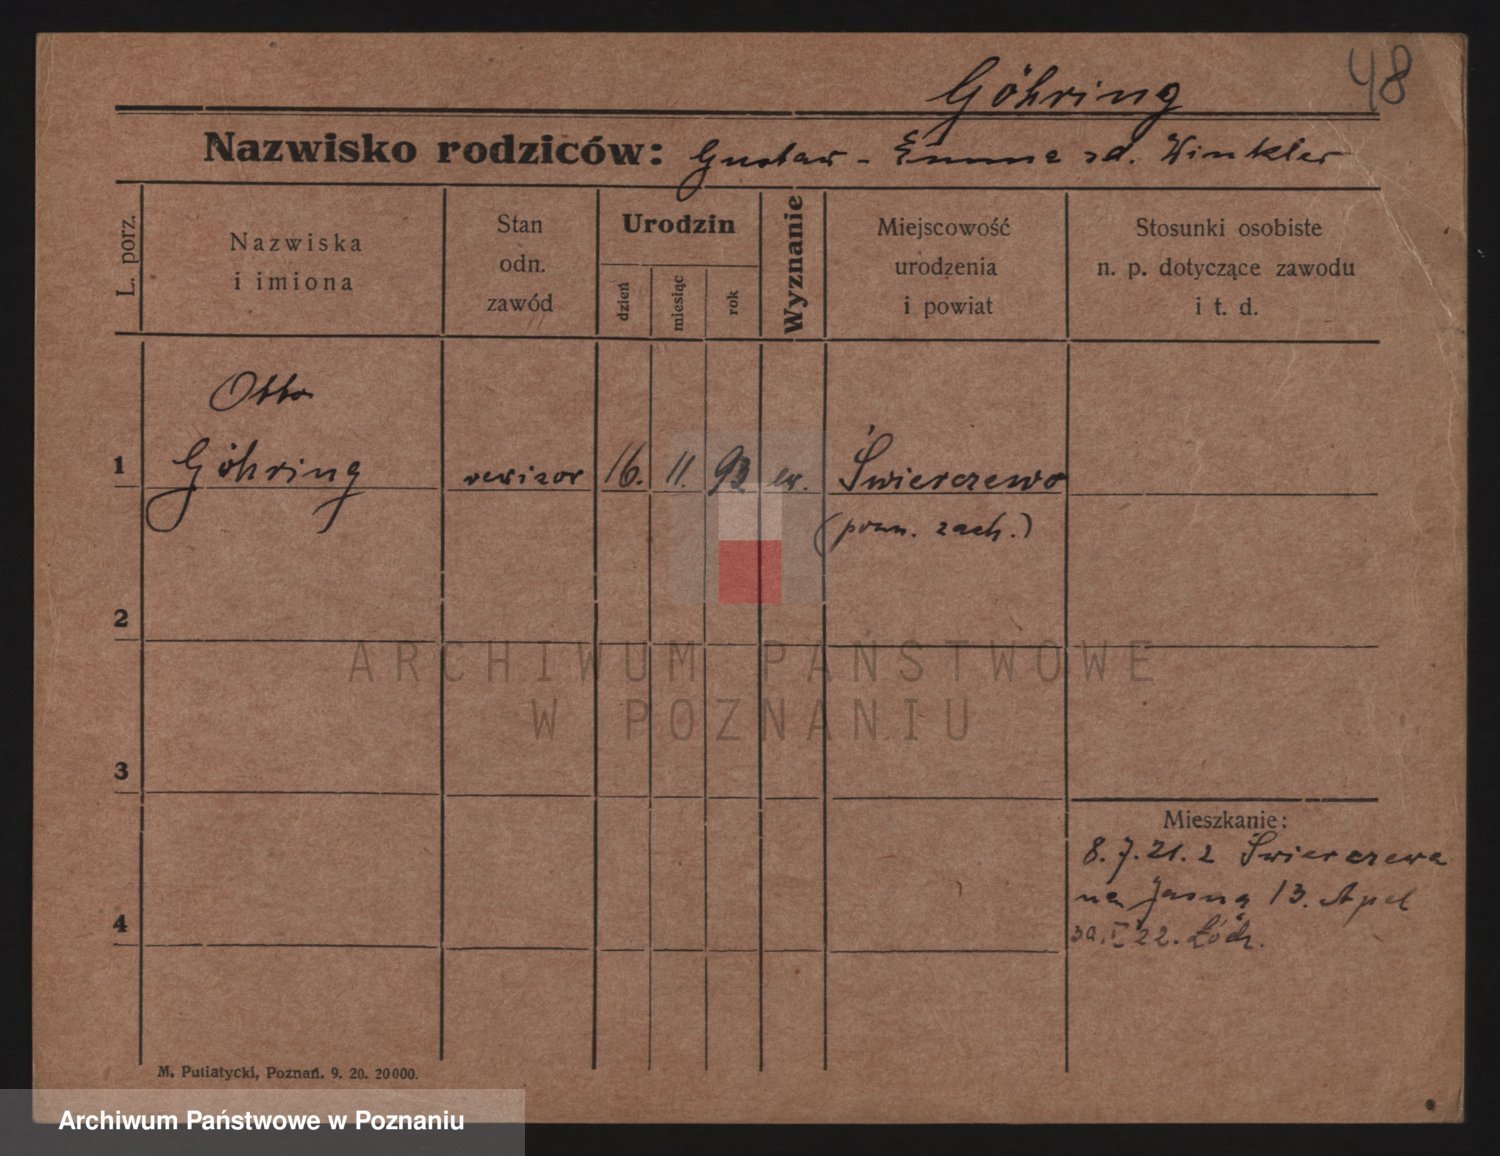 48
Göhring
Nazwisko rodziców: Gustaw - Emma zd. Winkler
L. porz.
Nazwiska
i imiona
Stan
odn.
zawód
Urodzin
dzień
miesiąc
rok
Wyznanie
Miejscowość
urodzenia
i powiat
Stosunki osobiste
n. p. dotyczące zawodu
i t. d.
Otto
1 Göhring rewizor 16. 11. 92 ew. Świerczewo
(pozn. zach.)
2
ARCHIWUM PAŃSTWOWE
W POZNANIU
3
Mieszkanie:
8.7.21. z Świerczewa
na Jasną 13. Apel
4
30. V 22. Łódź.
M. Putiatycki, Poznań. 9. 20. 20000.
Archiwum Państwowe w Poznaniu